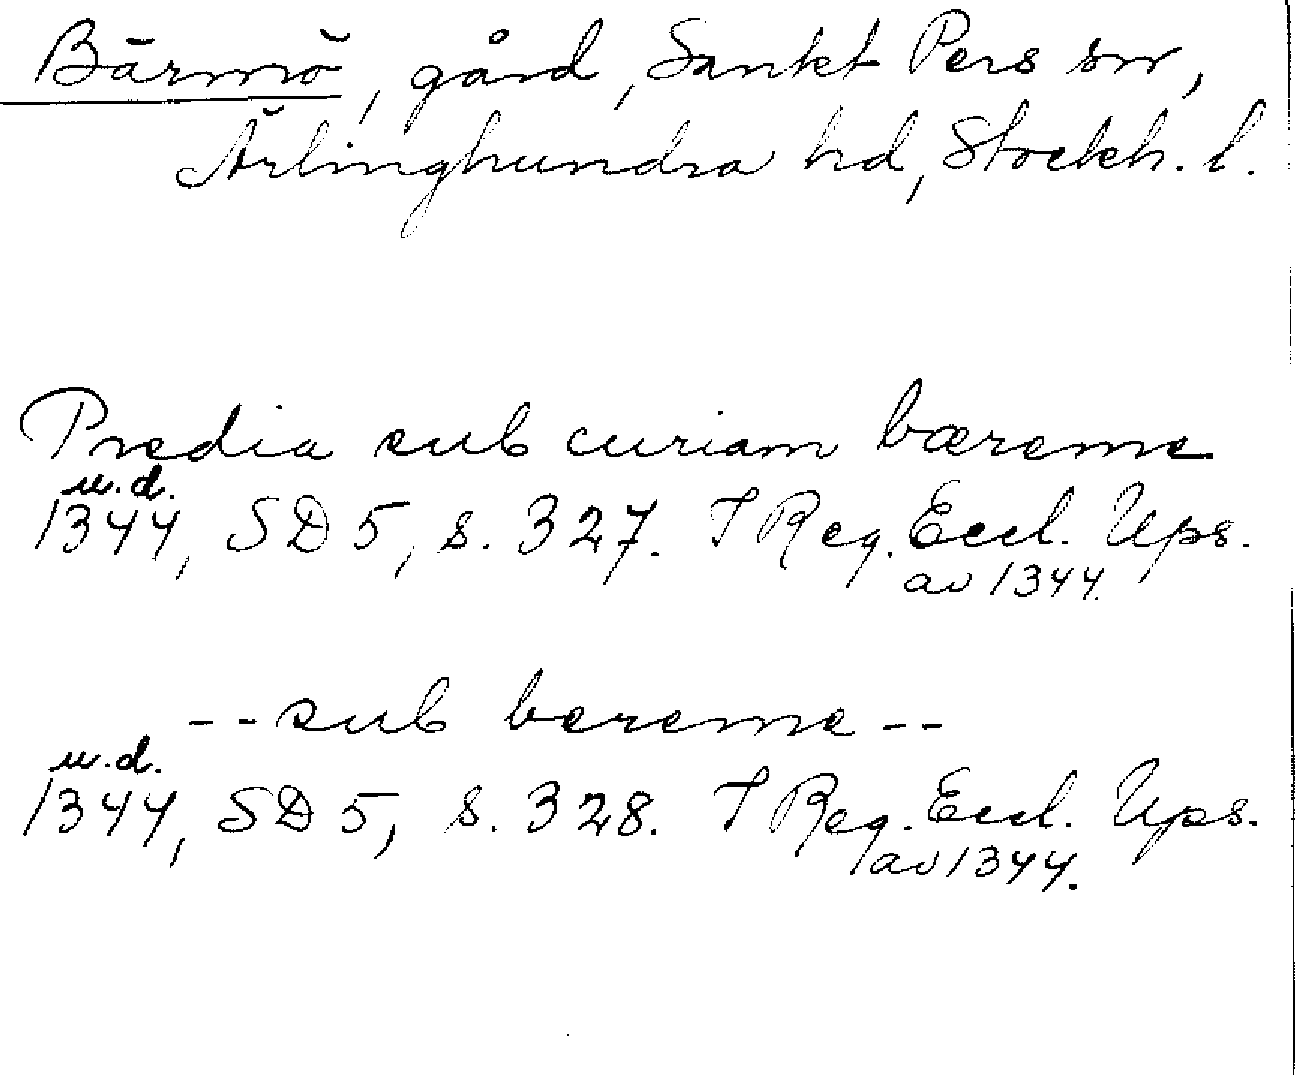 Bärmö, gård, Sankt Pers sn,
Ärlinghundra hd, Stockh. l.
Predia sub curiam bæreme
u.d.
1344, SD 5, s. 327. I Reg. Eccl. Ups.
av 1344.
-- sub bereme --
u.d.
1344, SD 5, s. 328. I Reg. Eccl. Ups.
av 1344.